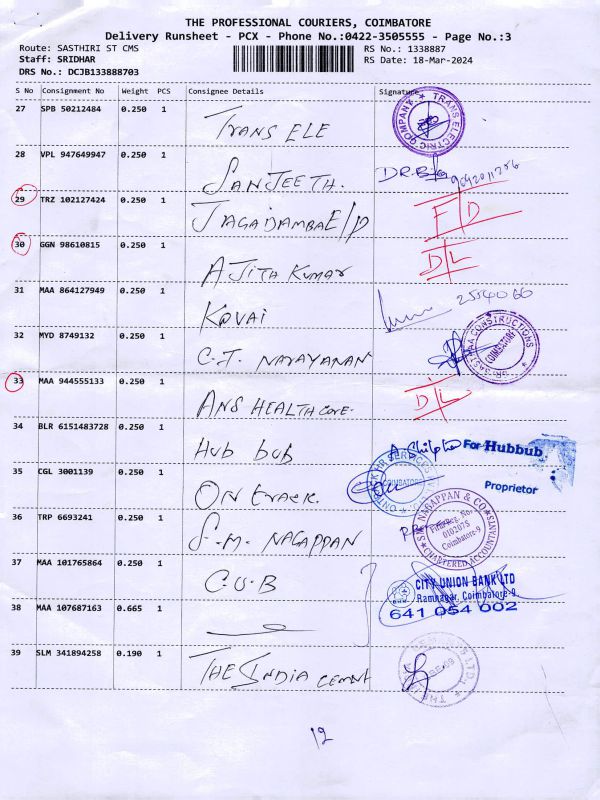 THE PROFESSIONAL COURIERS, COIMBATORE
Delivery Runsheet - PCX - Phone No.:0422-3505555 - Page No.:3
Route: SASTHIRI ST CMS
RS No.: 1338887
Staff: SRIDHAR
RS Date: 18-Mar-2024
DRS No.: DCJB133888703
S No Consignment No Weight PCS Consignee Details Signature
27 SPB 50212484 0.250 1 TRANS ELE
TRANS ELECTRIC COMPANY
28 VPL 947649947 0.250 1 SANJEETH.
29 TRZ 102127424 0.250 1 JAGADAMBA E/D F/D
30 GGN 98610815 0.250 1 AJITH KUMAR D/L
31 MAA 864127949 0.250 1 KOVAI
32 MYD 8749132 0.250 1 C.J. NARAYANAN
CONSTRUCTIONS
COIMBATORE
33 MAA 944555133 0.250 1 ANS HEALTH CARE. D/L
34 BLR 6151483728 0.250 1 HUB BUB
For Hubbub
Proprietor
35 CGL 3001139 0.250 1 ON track.
COIMBATORE
36 TRP 6693241 0.250 1 S.M. NAGAPPAN
S.M. NAGAPPAN & CO
Firm Reg. No.
010207S
Coimbatore-9
CHARTERED ACCOUNTANTS
37 MAA 101765864 0.250 1 C.U.B
CITY UNION BANK LTD
Ramnagar, Coimbatore-9.
641 054 002
38 MAA 107687163 0.665 1
39 SLM 341894258 0.190 1 THE INDIA CEMENT
12